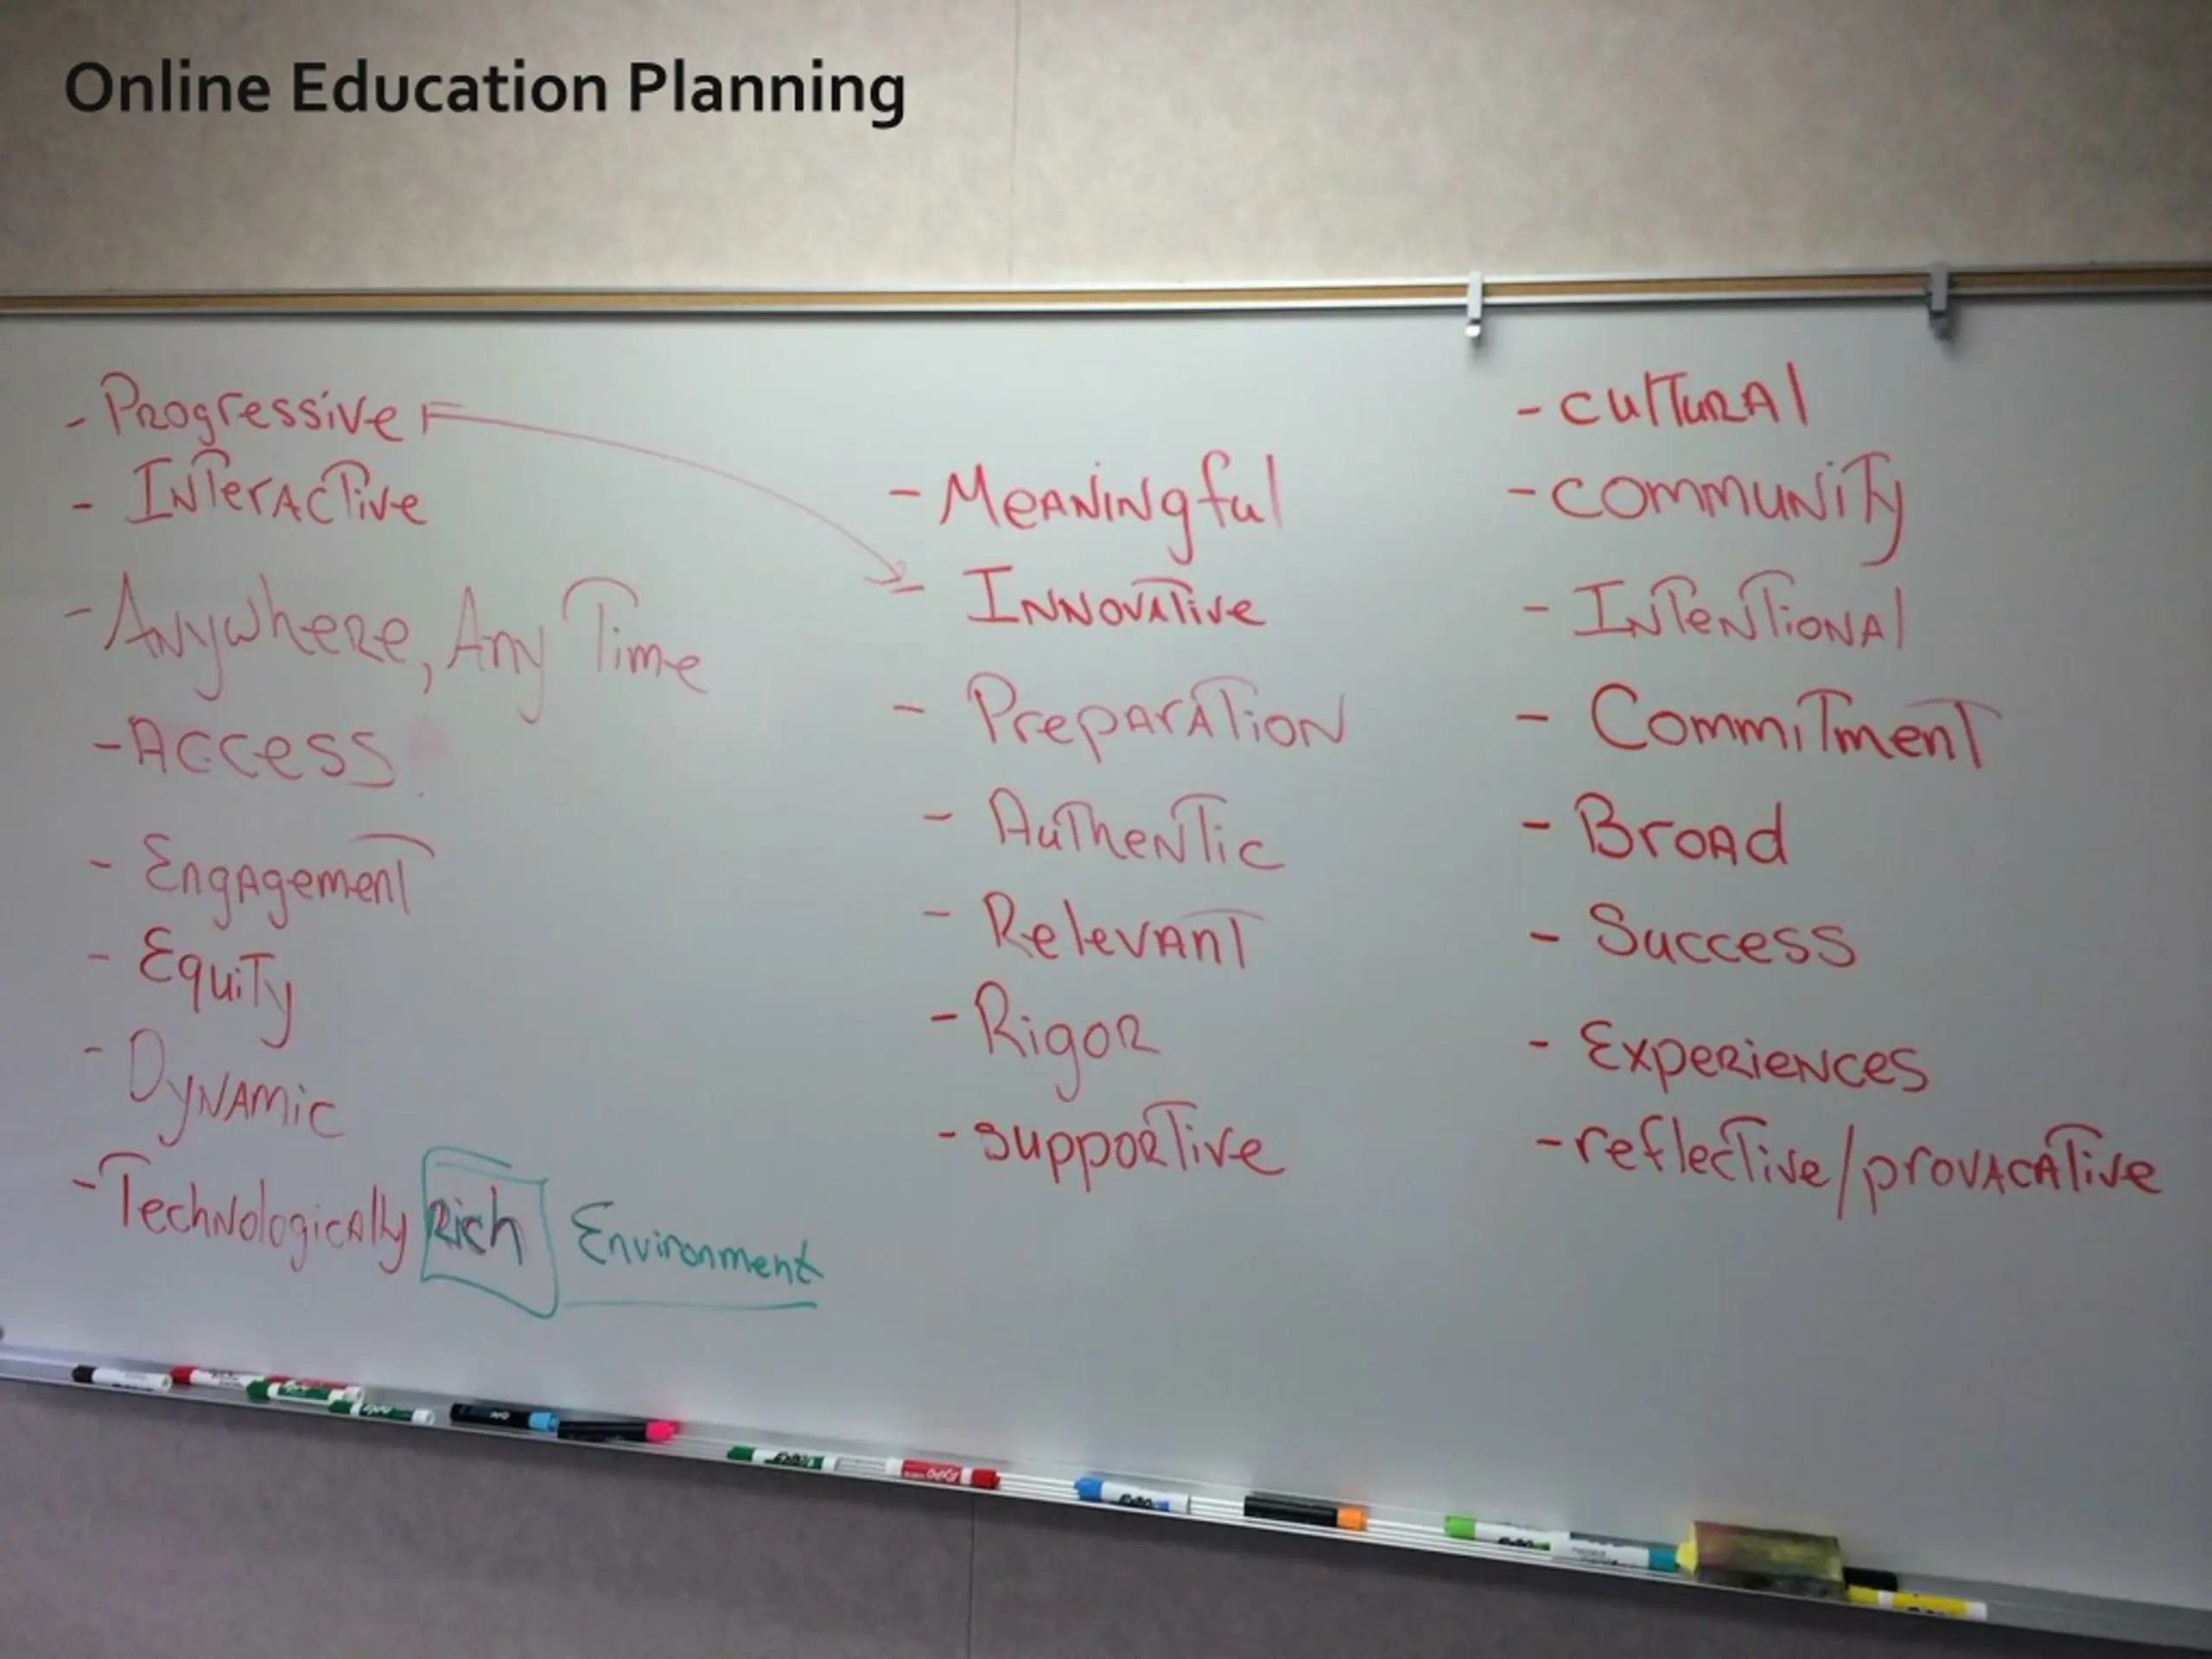 Online Education Planning
- Progressive
- Interactive
- Anywhere, Any Time
- Access
- Engagement
- Equity
- Dynamic
- Technologically Rich Environment
- Meaningful
- Innovative
- Preparation
- Authentic
- Relevant
- Rigor
- supportive
- cultural
- community
- Intentional
- Commitment
- Broad
- Success
- Experiences
- reflective/provacative